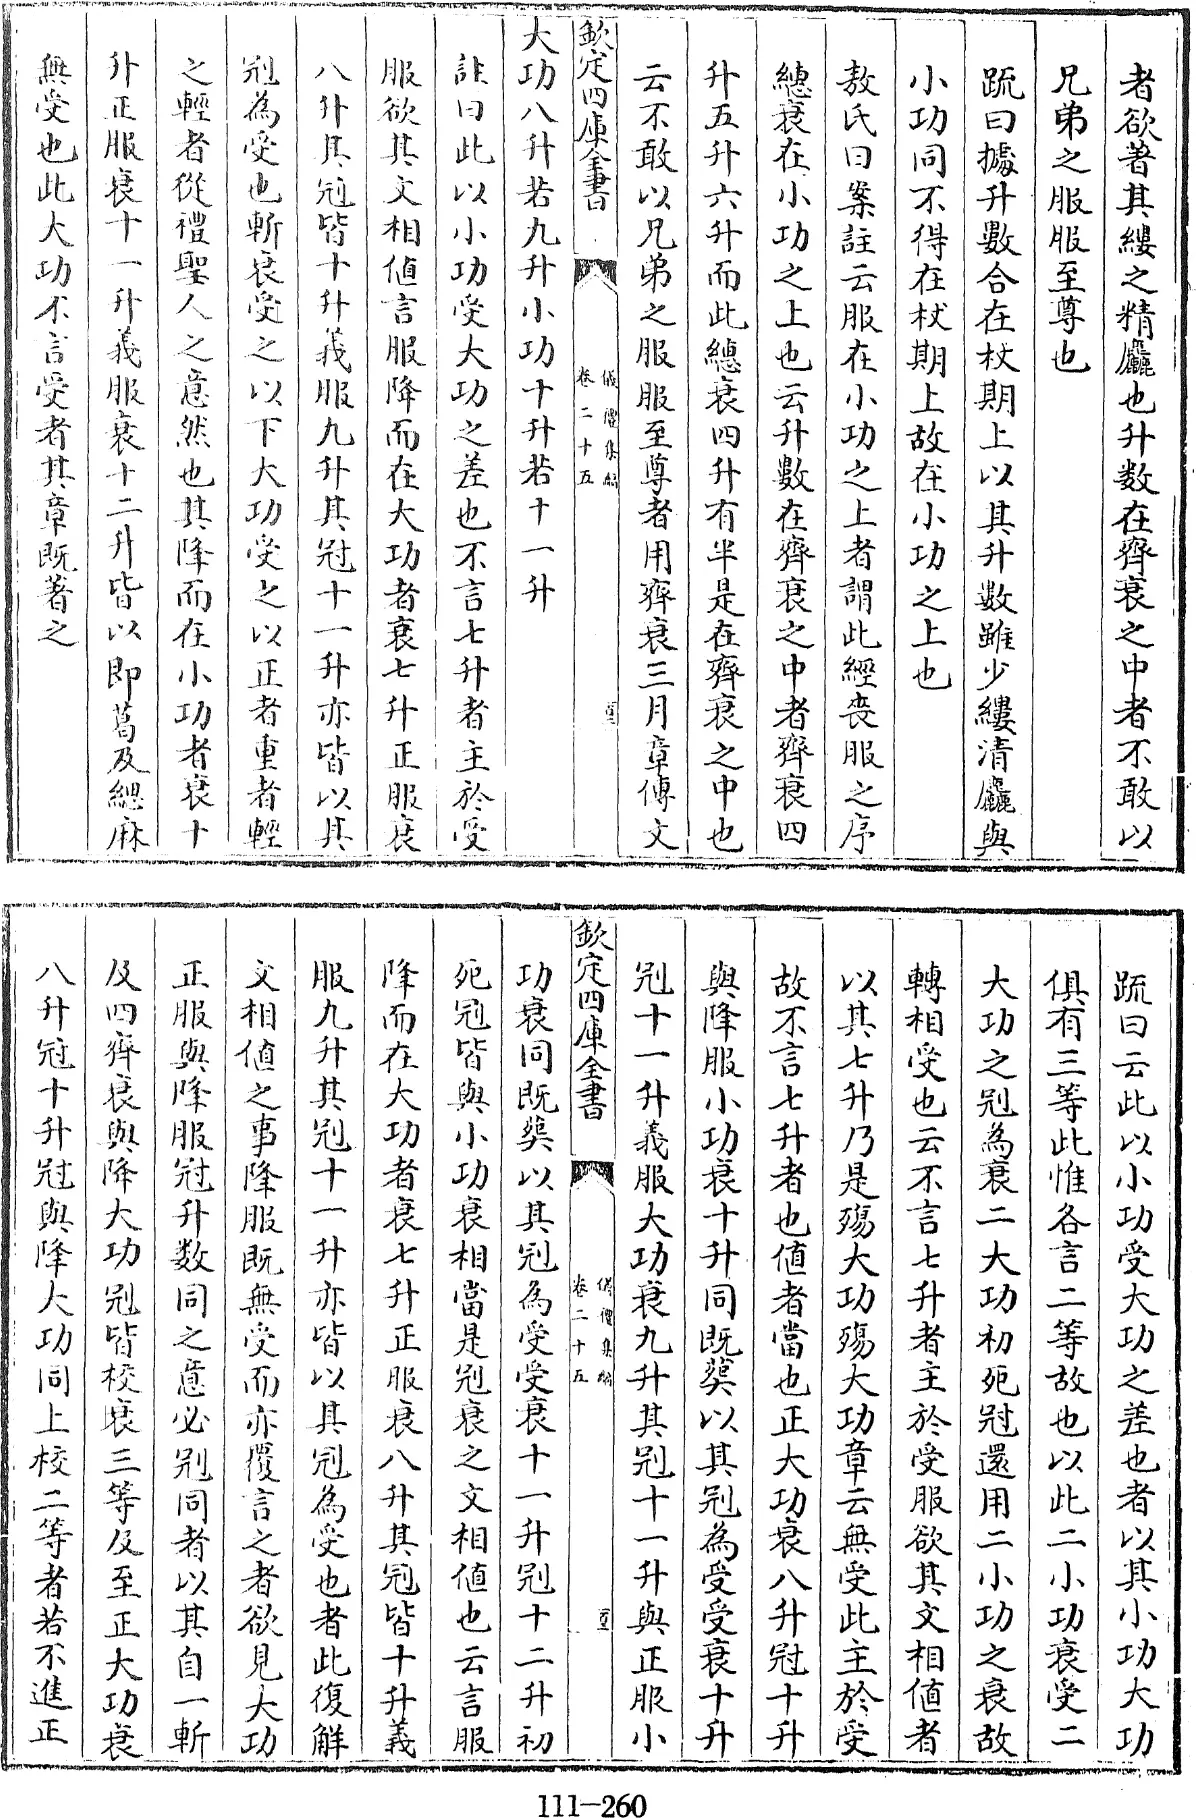 者欲著其縷之精麤也升数在齊衰之中者不敢以
兄弟之服服至尊也
疏曰據升數合在杖期上以其升數雖少縷清麤與
小功同不得在杖期上故在小功之上也
敖氏曰案註云服在小功之上者謂此經喪服之序
繐衰在小功之上也云升數在齊衰之中者齊衰四
升五升六升而此繐衰四升有半是在齊衰之中也
云不敢以兄弟之服服至尊者用齊衰三月章傳文
欽定四庫全書
儀禮集編
卷二十五
大功八升若九升小功十升若十一升
註曰此以小功受大功之差也不言七升者主於受
服欲其文相值言服降而在大功者衰七升正服衰
八升其冠皆十升義服九升其冠十一升亦皆以其
冠為受也斬衰受之以下大功受之以正者重者輕
之輕者從禮聖人之意然也其降而在小功者衰十
升正服衰十一升義服衰十二升皆以即葛及緦麻
無受也此大功不言受者其章既著之
疏曰云此以小功受大功之差也者以其小功大功
俱有三等此惟各言二等故也以此二小功衰受二
大功之冠為衰二大功初死冠還用二小功之衰故
轉相受也云不言七升者主於受服欲其文相值者
以其七升乃是殤大功殤大功章云無受此主於受
故不言七升者也值者當也正大功衰八升冠十升
與降服小功衰十升同既葬以其冠為受受衰十升
冠十一升義服大功衰九升其冠十一升與正服小
欽定四庫全書
儀禮集編
卷二十五
功衰同既葬以其冠為受受衰十一升冠十二升初
死冠皆與小功衰相當是冠衰之文相值也云言服
降而在大功者衰七升正服衰八升其冠皆十升義
服九升其冠十一升亦皆以其冠為受也者此復解
文相值之事降服既無受而亦覆言之者欲見大功
正服與降服冠升数同之意必冠同者以其自一斬
及四齊衰與降大功冠皆校衰三等及至正大功衰
八升冠十升冠與降大功同上校二等者若不進正
111—260